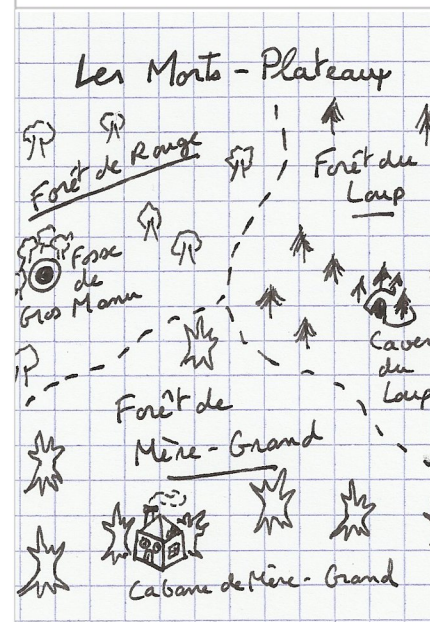 Les Morts-Plateaux
Forêt de Rouge
Forêt du
Loup
Fosse
de
Gros Manu
Caver
du
Loup
Forêt de
Mère-Grand
Cabane de Mère-Grand